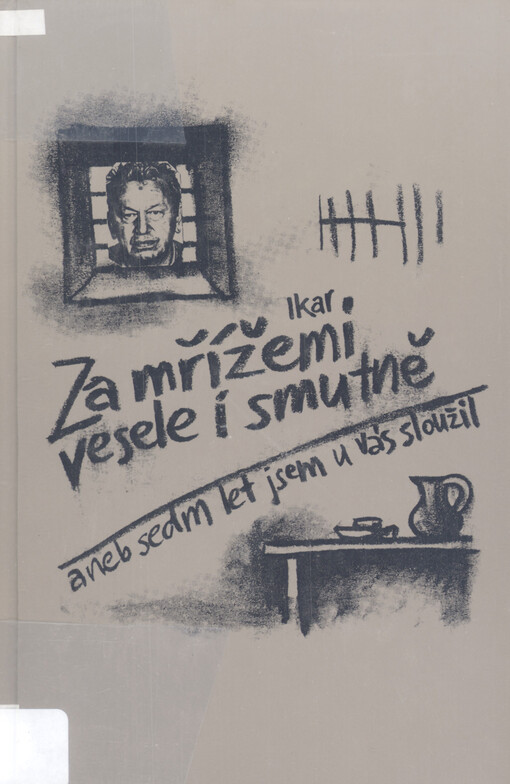 Ikar
Za mřížemi
vesele i smutně
aneb sedm let jsem u vás sloužil